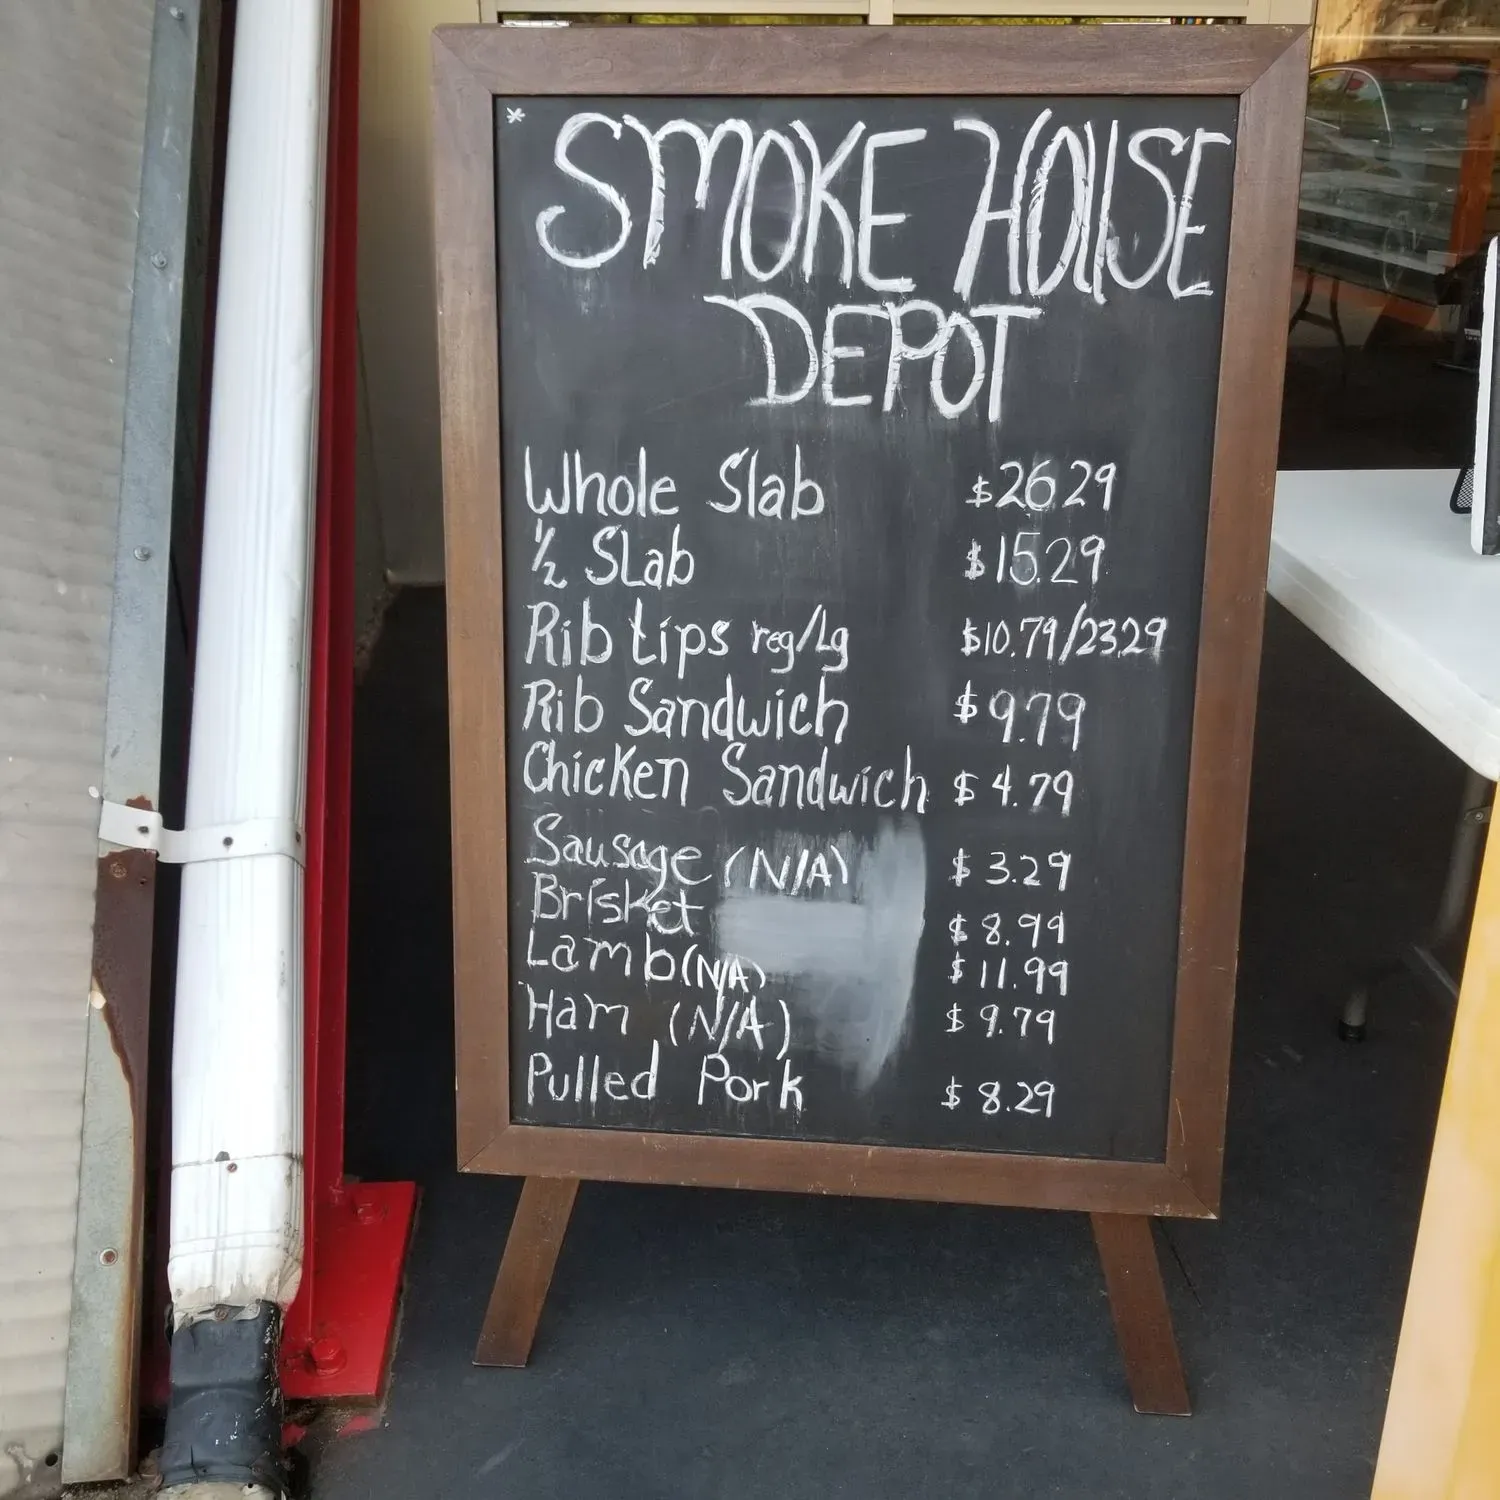 * SMOKE HOUSE
DEPOT
Whole Slab $26.29
1/2 SLab $15.29
Rib tips reg/Lg $10.79/23.29
Rib Sandwich $9.79
Chicken Sandwich $4.79
Sausage (N/A) $3.29
Brisket $8.99
Lamb (N/A) $11.99
Ham (N/A) $9.79
Pulled Pork $8.29